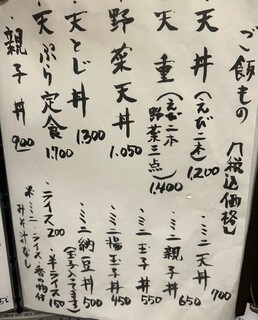 ご飯もの 【税込価格】
・天丼(えび二本) 1,200
・天重(えび二本 野菜三点) 1,400
・野菜天丼 1,050
・天とじ丼 1,300
・天ぷら定食 1,700
・親子丼 900
・ミニ天丼 700
・ミニ親子丼 650
・ミニ玉子丼 550
・ミニ揚玉子丼 450
・ミニ納豆丼 500
(玉子入ってます)
・ライス 200 ・半ライス 150
※ミニ・ライス・香の物付
みそ汁なし